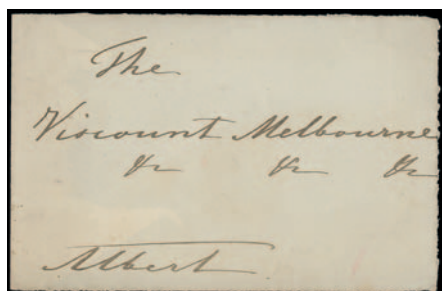 The
Viscount Melbourne
&c &c &c
Albert